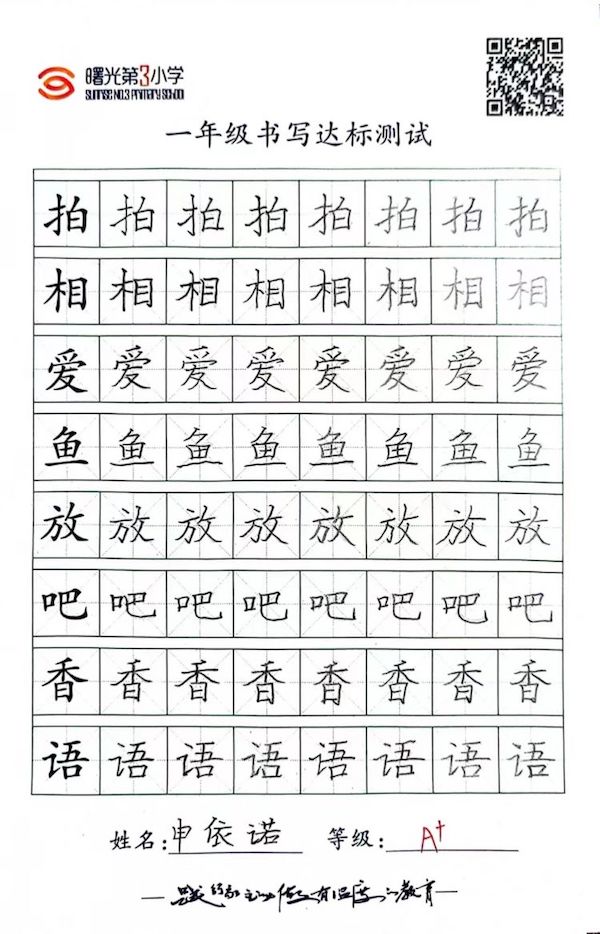 曙光第3小学
SUNRISE NO.3 PRIMARY SCHOOL
一年级书写达标测试
拍 拍 拍 拍 拍 拍 拍 拍
相 相 相 相 相 相 相 相
爱 爱 爱 爱 爱 爱 爱 爱
鱼 鱼 鱼 鱼 鱼 鱼 鱼 鱼
放 放 放 放 放 放 放 放
吧 吧 吧 吧 吧 吧 吧 吧
香 香 香 香 香 香 香 香
语 语 语 语 语 语 语 语
姓名:申依诺 等级:A+
做有温度的教育